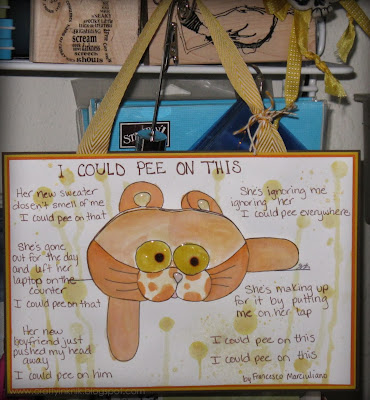 SNEAKY
scream
darkness
ghouls
Stampin' Up!
I COULD PEE ON THIS
Her new sweater
dosen't smell of me
I could pee on that
She's gone
out for the day
and left her
laptop on the
counter
I could pee on that
Her new
boyfriend just
pushed my head
away
I could pee on him
She's ignoring me
ignoring her
I could pee everywhere
She's making up
for it by putting
me on her lap
I could pee on this
I could pee on this
by Francesco Marciuliano